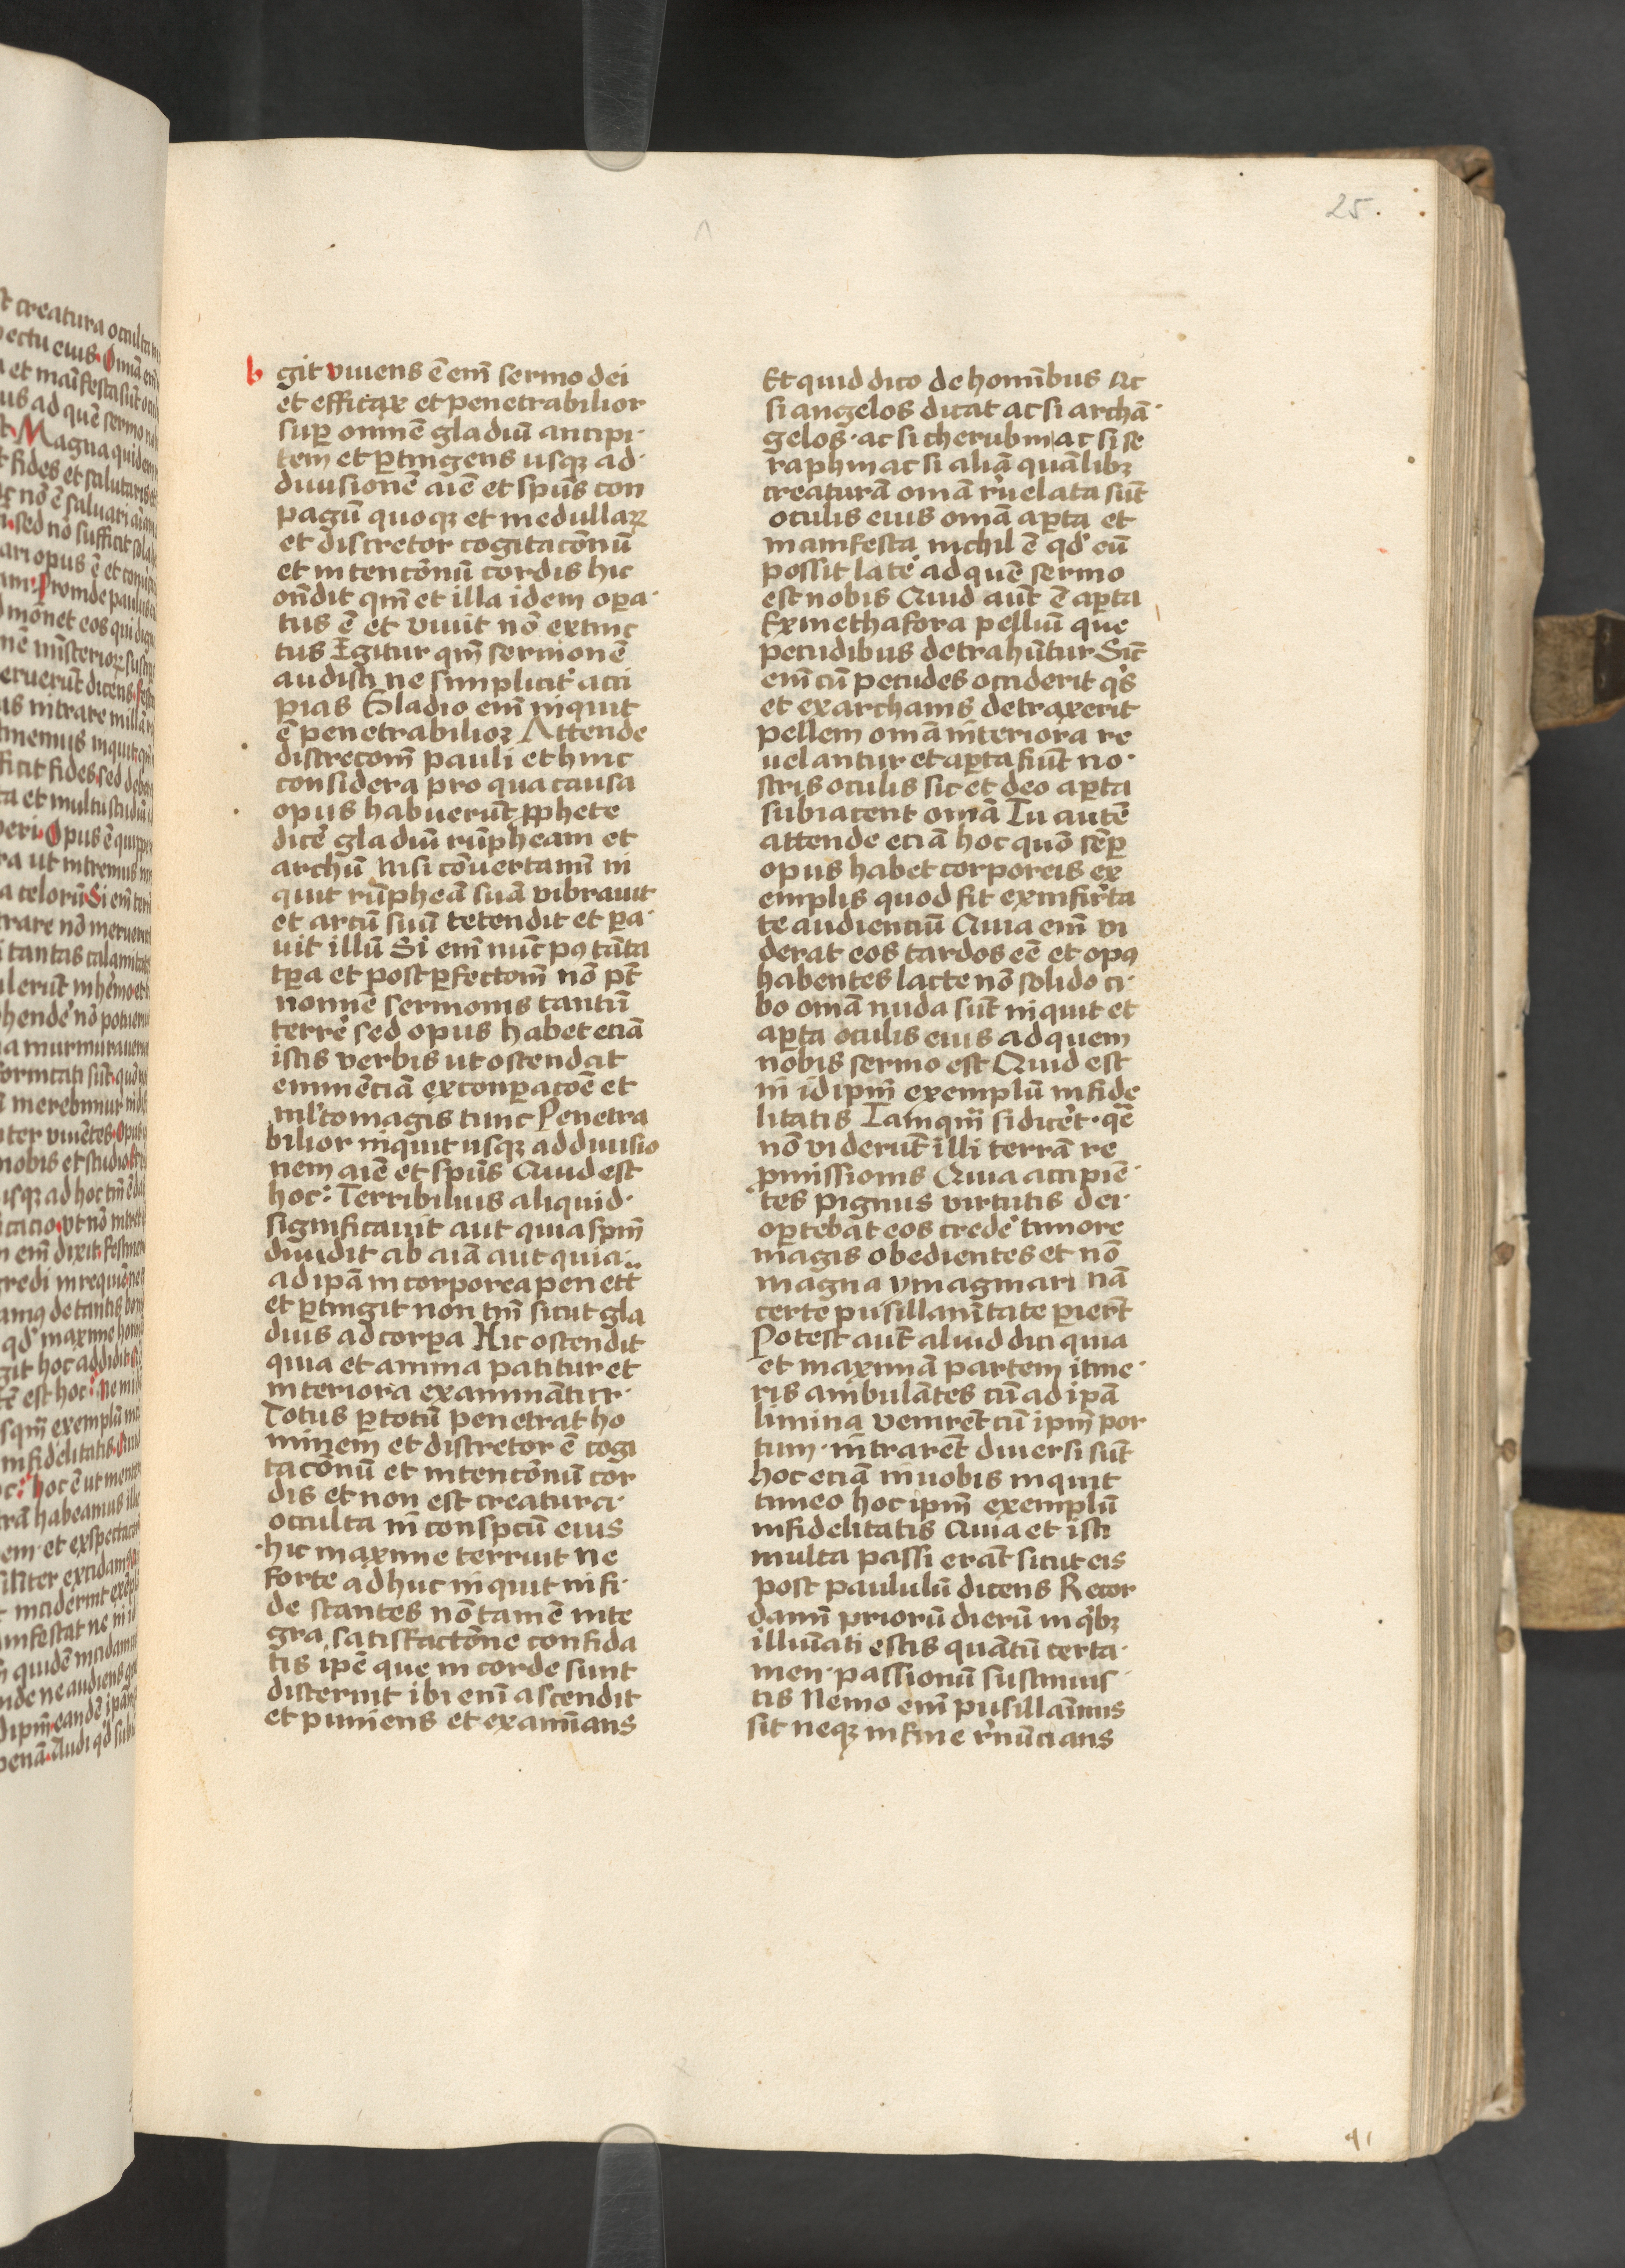 25.
b
git viuens ē em̄ sermo dei
et efficax et penetrabilior
sup̱ omnē gladiū ancipi
tem et p̱tingens usqꝫ ad
diuisionē aīe et spūs con
pagū quoqꝫ et medullaꝝ
et discretor cogitacōnū
et intencōnū cordis hic
on̄dit qm̄ et illa idem op̱a
tus ē et viuit nō extinc
tus Igitur qm̄ sermonē
audisti ne simplicit᷑ acci
pias Gladio em̄ inquit
ē penetrabilior Attende
discrecom̄ pauli et hinc
considera pro qua causa
opus habuerūt ꝓphete
dicē gladiū rūpheam et
archū Nisi cōuertamī in
quit rūpheā suā vibrauit
et arcū suū tetendit et p̱a
uit illū Si em̄ nūc pꝰ tāta
tp̱a et post p̱fectom̄ nō pt̄
nomīe sermonis tantū
terrē sed opus habet eciā
istis verbis ut ostendat
eminēciā ex conp̱acoē et
ml̓to magis tunc Penetra
bilior inquit usqꝫ ad diuisio
nem aīe et spūs Quid est
hoc: Terribilius aliquid
significauit aut quia spm̄
diuidit ab aīa aut quia
ad ipā incorporea penett̄
et p̱tingit non tm̄ sicut gla
dius ad corp̱a Hic ostendit
quia et anima patitur et
interiora examinātur
Totus p̱ totū penetrat ho
minem et discretor ē cogi
tacōnū et intencōnū cor
dis et non est creatura
occulta in conspcū eius
hic maxime terruit ne
forte adhuc inquit in fi
de stantes nō tamē inte
gra satisfactōne confida
tis ipē que in corde sunt
discernit ibi em̄ ascendit
et puniens et examīans
Et quid dico de homībus Ac
si angelos dicat ac si archā
gelos ac si cherubin ac si se
raphin ac si aliā quālibꝫ
creaturā omīa r̓uelata sūt
oculis eius omīa ap̱ta et
manifesta nichil ē qd̓ eū
possit latē ad quē sermo
est nobis Quid aūt ē ap̱ta
Ex methafora pelliū que
pecudibus detrahūntur Sic̄
em̄ cū pecudes occiderit qs̓
et ex archanis detraxerit
pellem omīa interiora re
uelantur et ap̱ta fiūt no
stris oculis sic et deo ap̱ta
subiacent omīa Tu autē
attende eciā hoc quō sēp̱
opus habet corporeis ex
emplis quod fit ex infir̄ta
te audienciū Quia em̄ vi
derat eos tardos eē et opꝰ
habentes lacte nō solido ci
bo omīa nuda sūt inquit et
ap̱ta oculis eius ad quem
nobis sermo est Quid est
in id ipm̄ exemplū infide
litatis Tamqm̄ si dicēt quē
nō viderūt illi terrā re
pmissionis Quia accipiē
tes pignus virtutis dei
op̱tebāt eos credē timore
magis obedientes et nō
magna ymaginari nā
certe pusillanīitate p̱iert̄
Potest aūt aliud dici quia
et maximā partem itine
ris ambulātes cū ad ipā
limina venirēt cū ipm̄ por
tum intrarēt diuersi sūt
hoc eciā in uobis inquit
timeo hoc ipm̄ exemplū
infidelitatis Quia et isti
multa passi erāt sicut eis
post paululū dicens Recor
damī priorū dierū in qbꝫ
illuīati estis quātū certa
men passionū sustinuis
tis Nemo em̄ pusillaīmus
sit neqꝫ in fine r̓nūcians